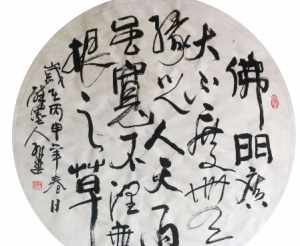 佛門廣
大不度無
緣之人天雨
雖寬不潤無
根之草
歲在丙申年春日
人